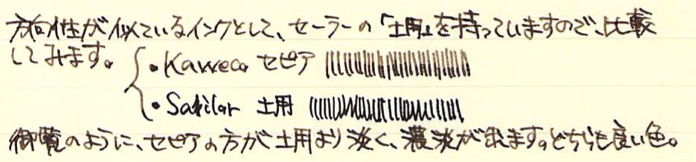 方向性が似ているインクとして、セーラーの「土用」を持っていますので、比較
してみます。
・Kaweco セピア
・Sailor 土用
御覧のように、セピアの方が土用より淡く、濃淡が出ます。どちらも良い色。